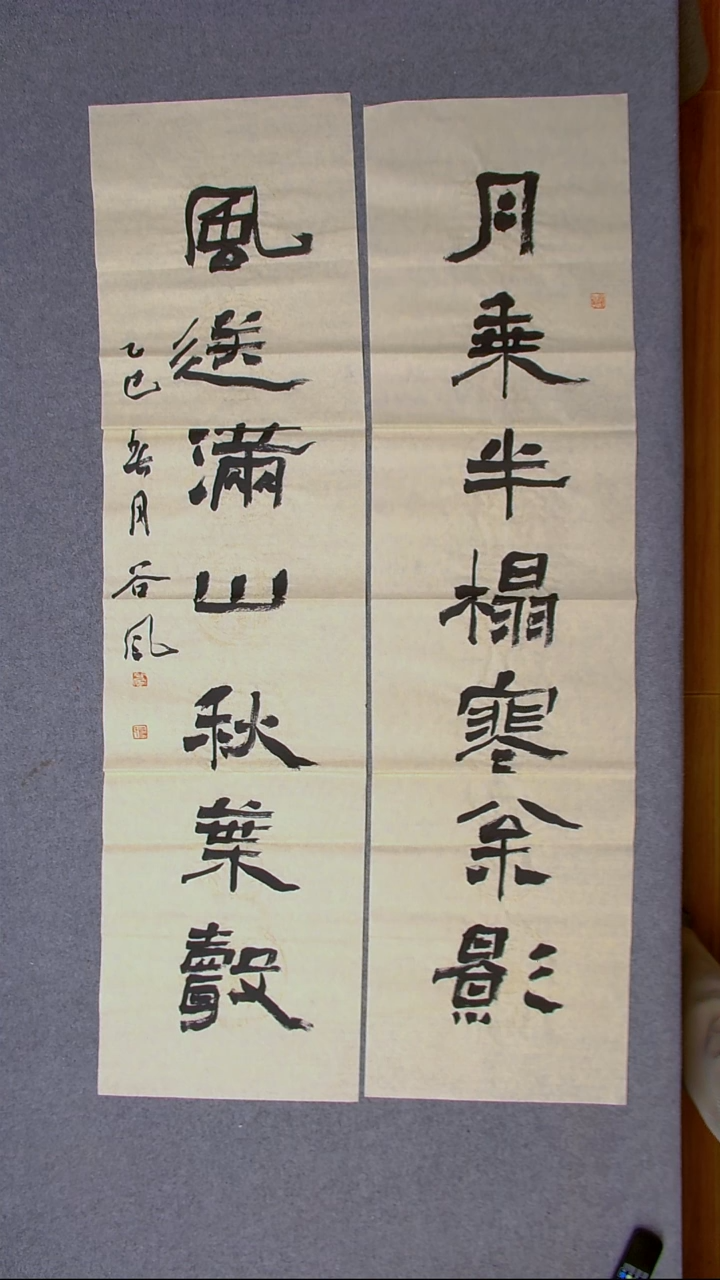 月乘半榻寒枀影
風送滿山秋葉聲
乙巳春月谷风